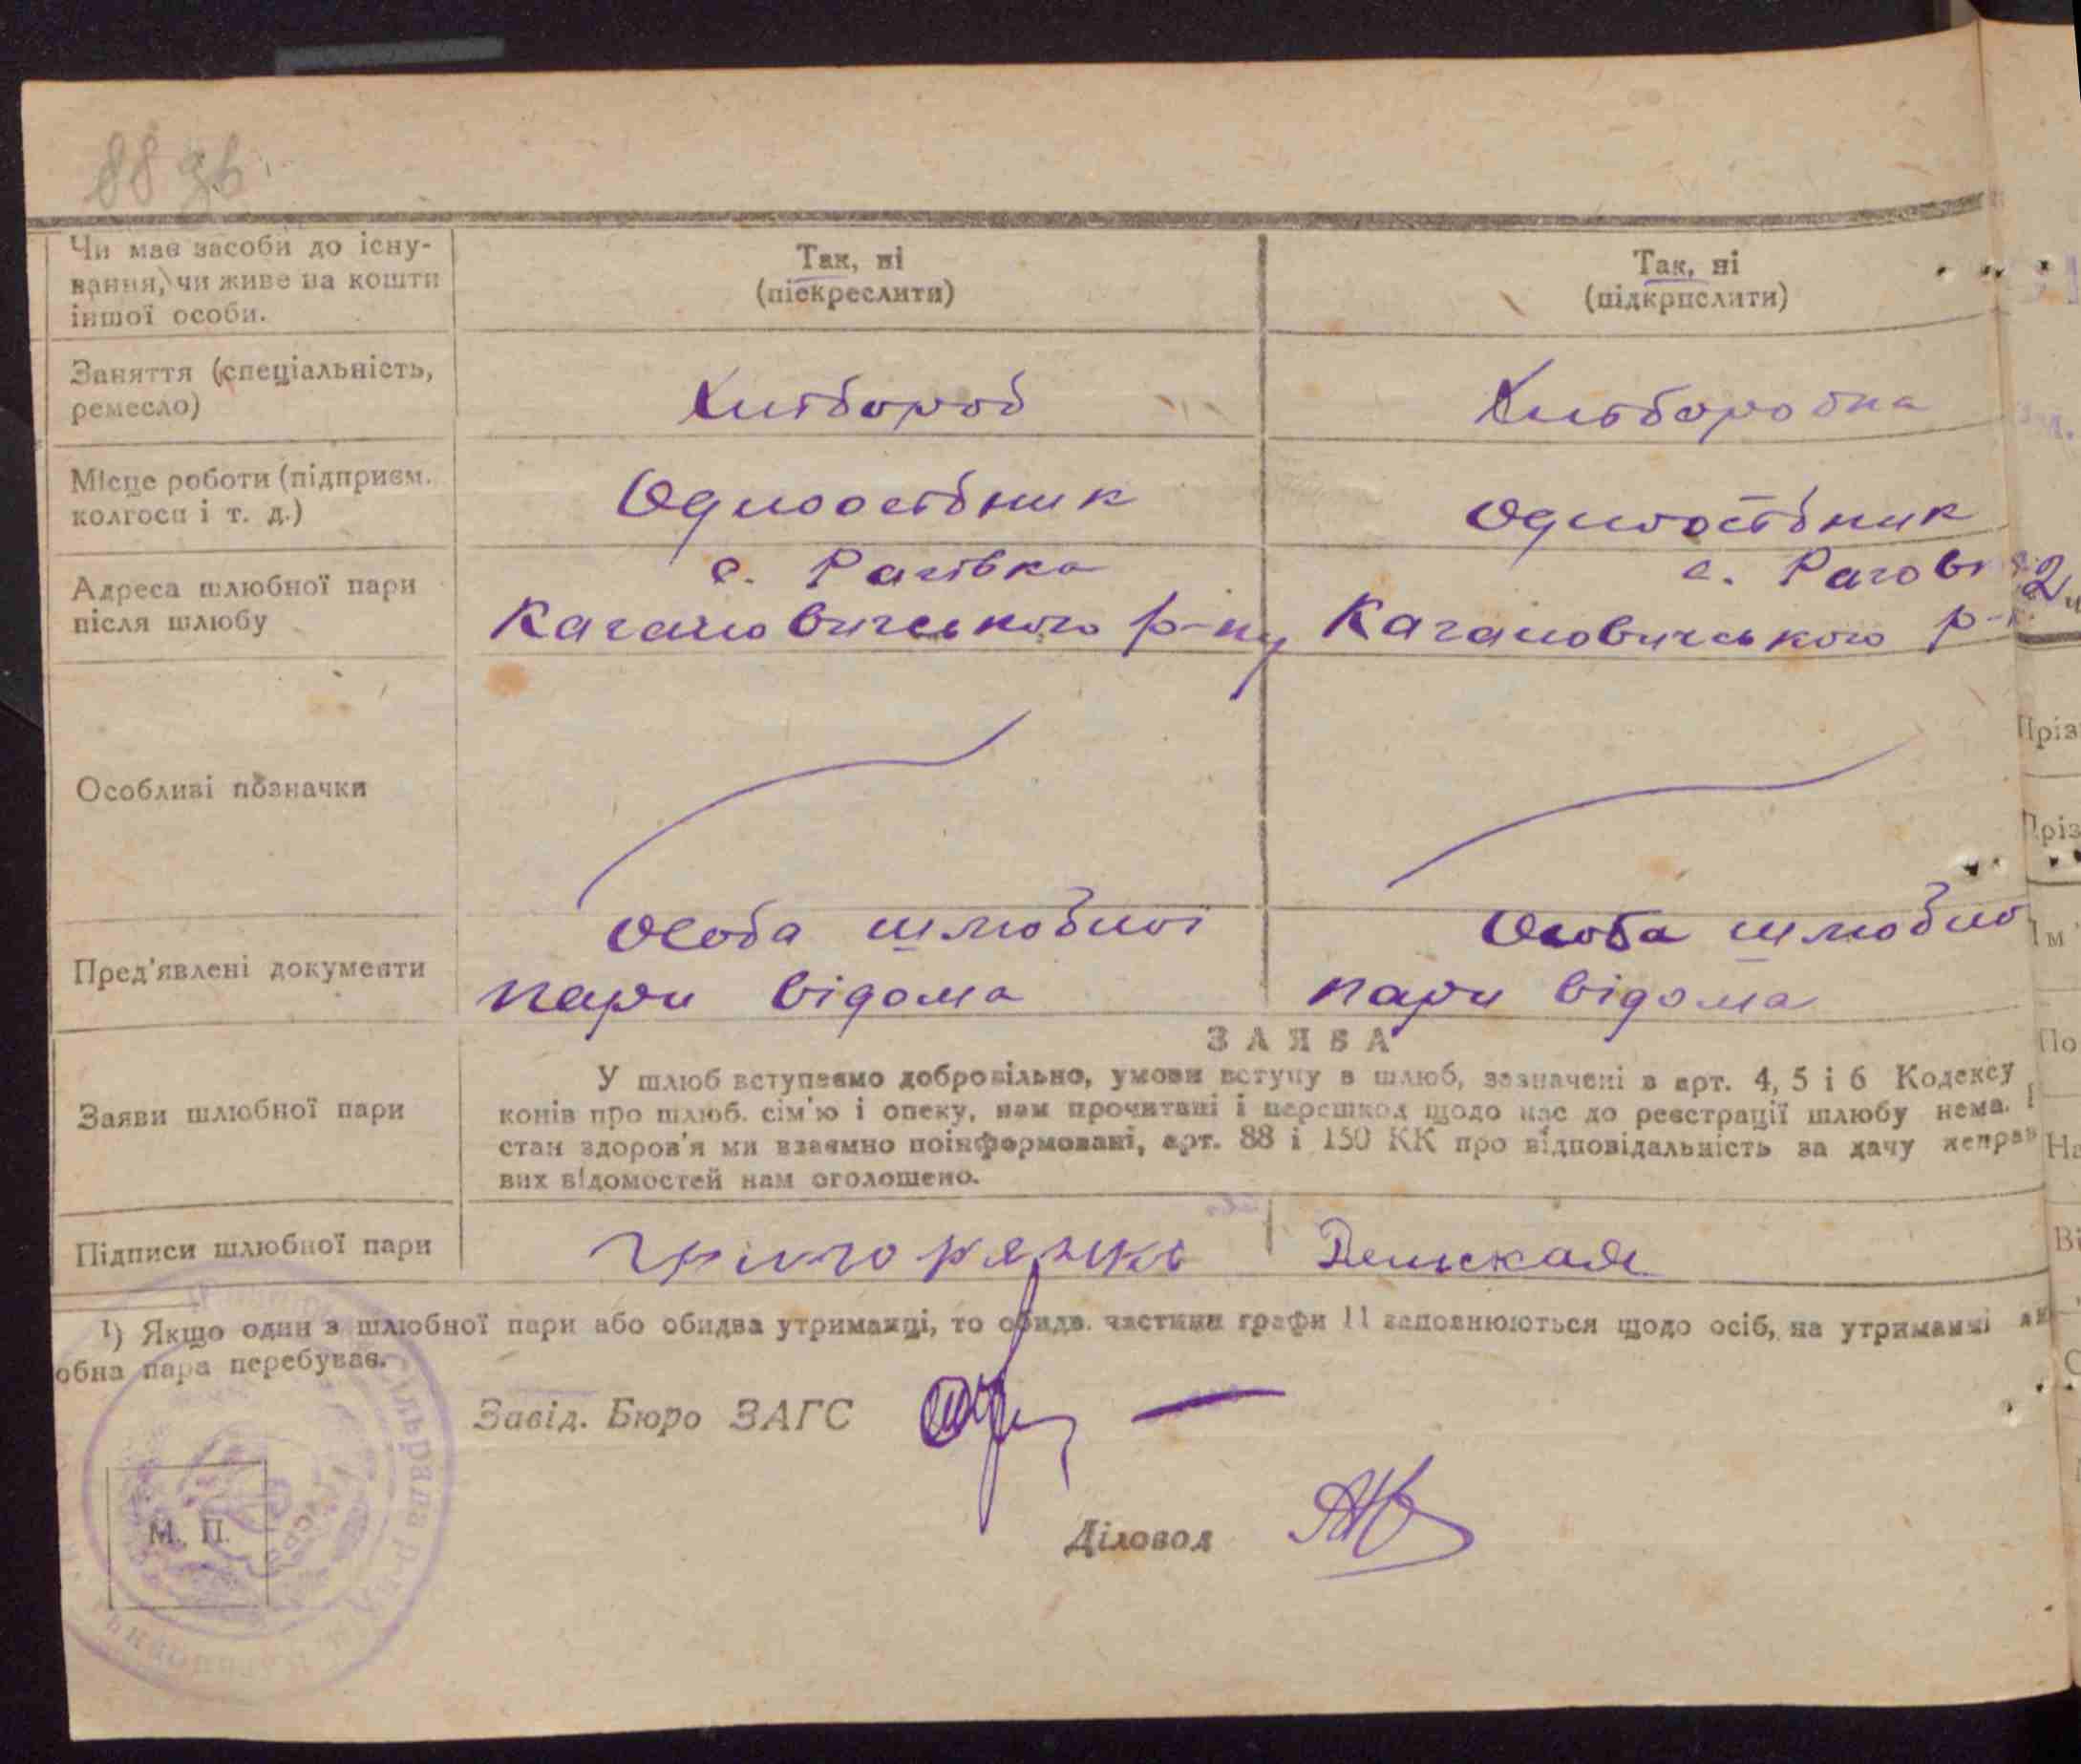 88 зв.
Чи має засоби до існу-
вання, чи живе на кошти
іншої особи.
Так, ні
(піскреслити)
Так, ні
(підкрислити)
Заняття (спеціальність,
ремесло)
Хлібороб
Хліборобка
Місце роботи (підприєм.
колгосп і т. д.)
Одноосібник
Одноосібник
Адреса шлюбної пари
після шлюбу
с. Рагівка
Кагановичського р-ну
с. Рагов
Кагановичського р-н
Особливі позначки
Пред'явлені документи
Особа шлюбної
пари відома
Особа шлюбно
пари відома
ЗАЯВА
Заяви шлюбної пари
У шлюб вступаємо добровільно, умови вступу в шлюб, зазначені в арт. 4, 5 і 6 Кодексу
конів про шлюб. сім'ю і опеку, нам прочитані і перешкод щодо нас до реєстрації шлюбу нема. І
стан здоров'я ми взаємно поінформовані, арт. 88 і 150 КК про відповідальність за дачу неправ
вих відомостей нам оголошено.
Підписи шлюбної пари
Григорянко
1) Якщо один з шлюбної пари або обидва утриманці, то обидв. частини графи 11 заповнюються щодо осіб, на утриманні як
обна пара перебуває.
Завід. Бюро ЗАГС
М. П.
Діловод
Пріз
Пріз
Ім
По
На
Ві